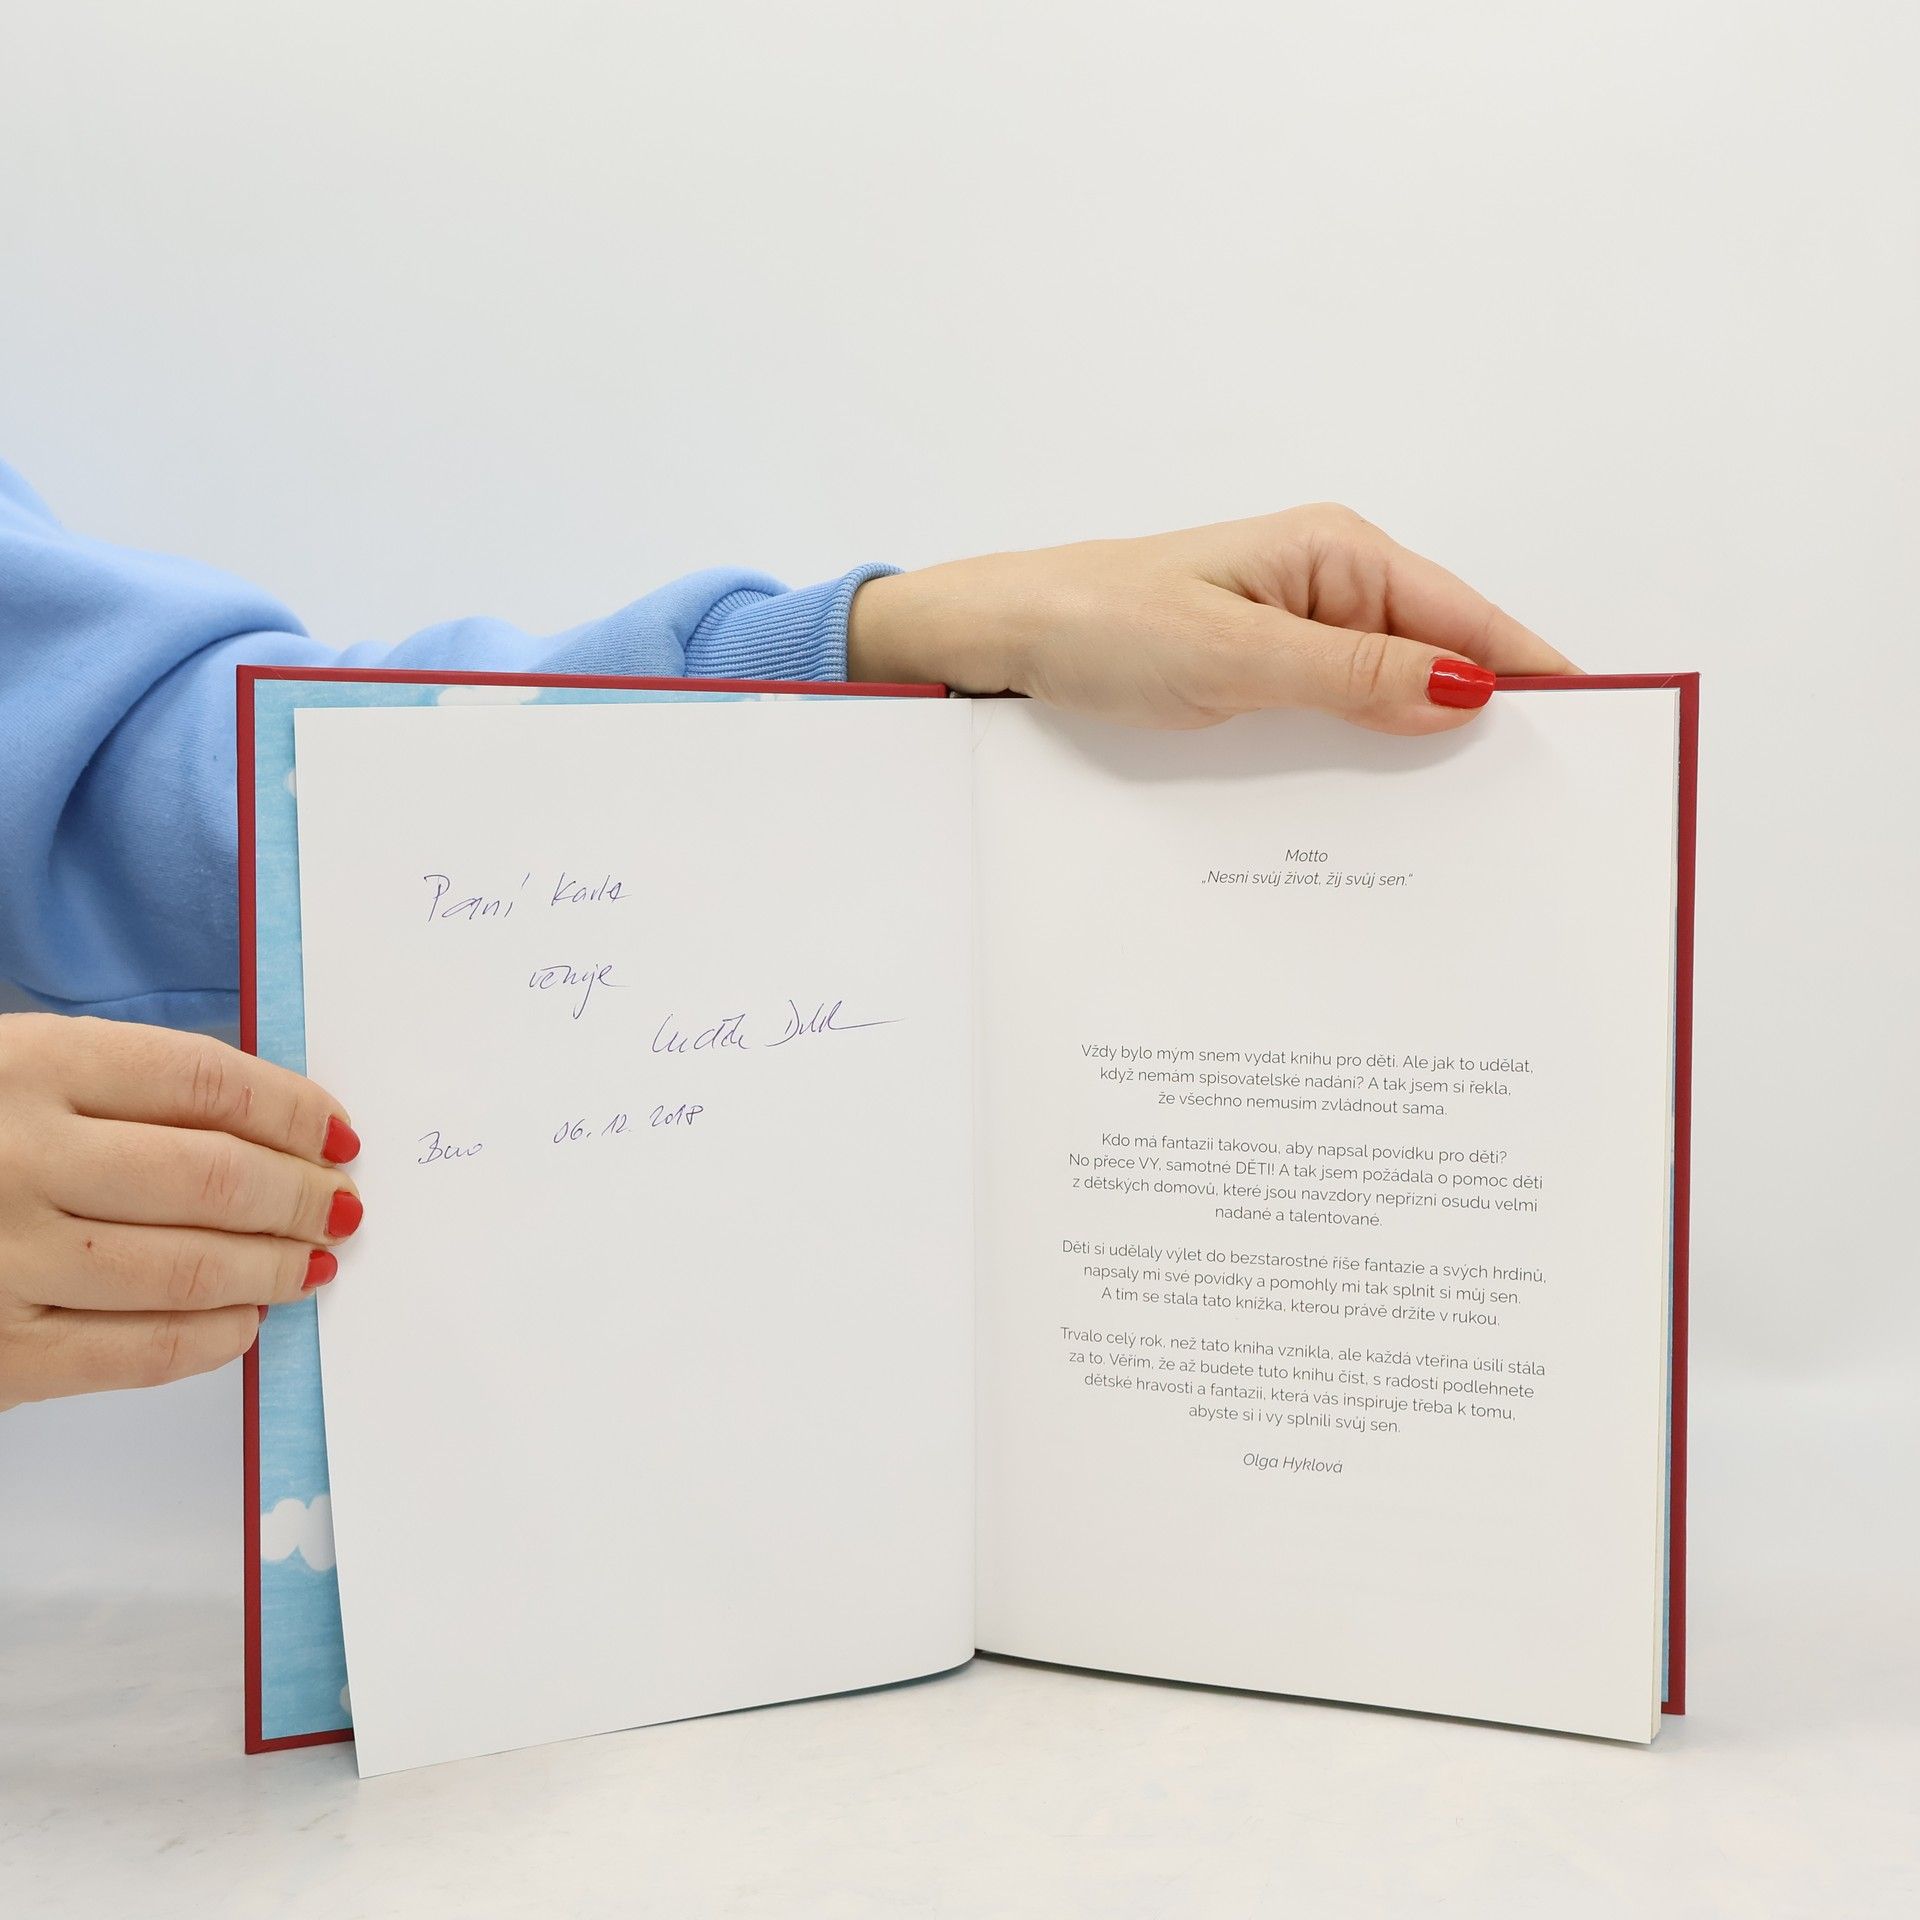 Paní Karle
věnuje
Luděk
Brno 06. 12. 2018
Motto
„Nesni svůj život, žij svůj sen.“
Vždy bylo mým snem vydat knihu pro děti. Ale jak to udělat,
když nemám spisovatelské nadání? A tak jsem si řekla,
že všechno nemusím zvládnout sama.
Kdo má fantazii takovou, aby napsal povídku pro děti?
No přece VY, samotné DĚTI! A tak jsem požádala o pomoc děti
z dětských domovů, které jsou navzdory nepřízni osudu velmi
nadané a talentované.
Děti si udělaly výlet do bezstarostné říše fantazie a svých hrdinů,
napsaly mi své povídky a pomohly mi tak splnit si můj sen.
A tím se stala tato knížka, kterou právě držíte v rukou.
Trvalo celý rok, než tato kniha vznikla, ale každá vteřina úsilí stála
za to. Věřím, že až budete tuto knihu číst, s radostí podlehnete
dětské hravosti a fantazii, která vás inspiruje třeba k tomu,
abyste si i vy splnili svůj sen.
Olga Hyklová